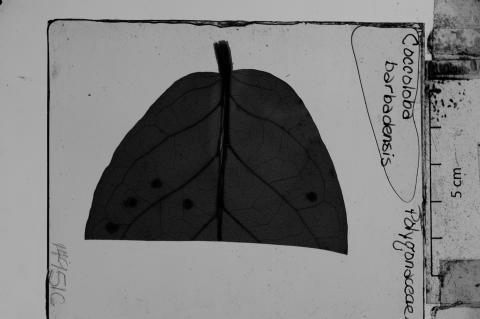 Coccoloba
barbadensis
Polygonaceae
5 cm